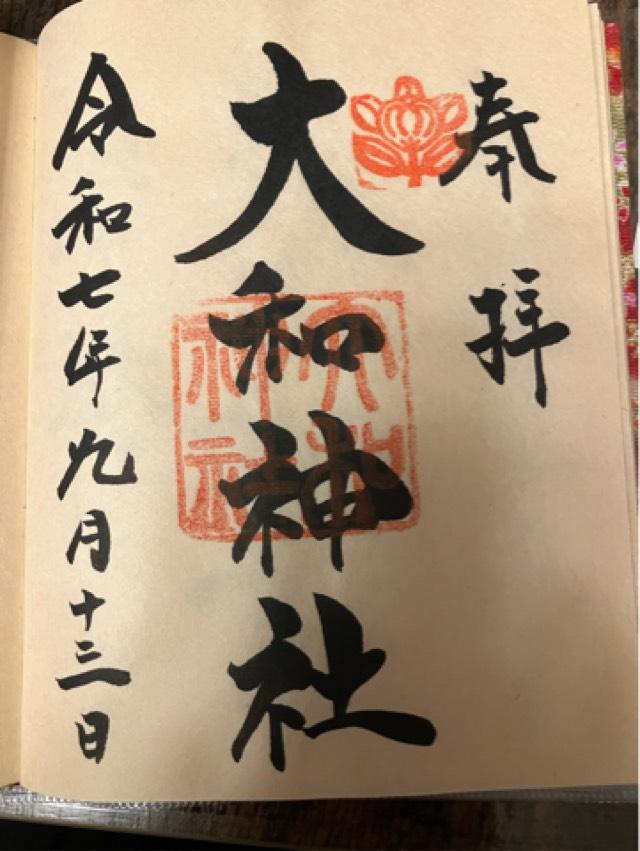 奉拝
大和神社
令和七年九月十三日
大和
神社